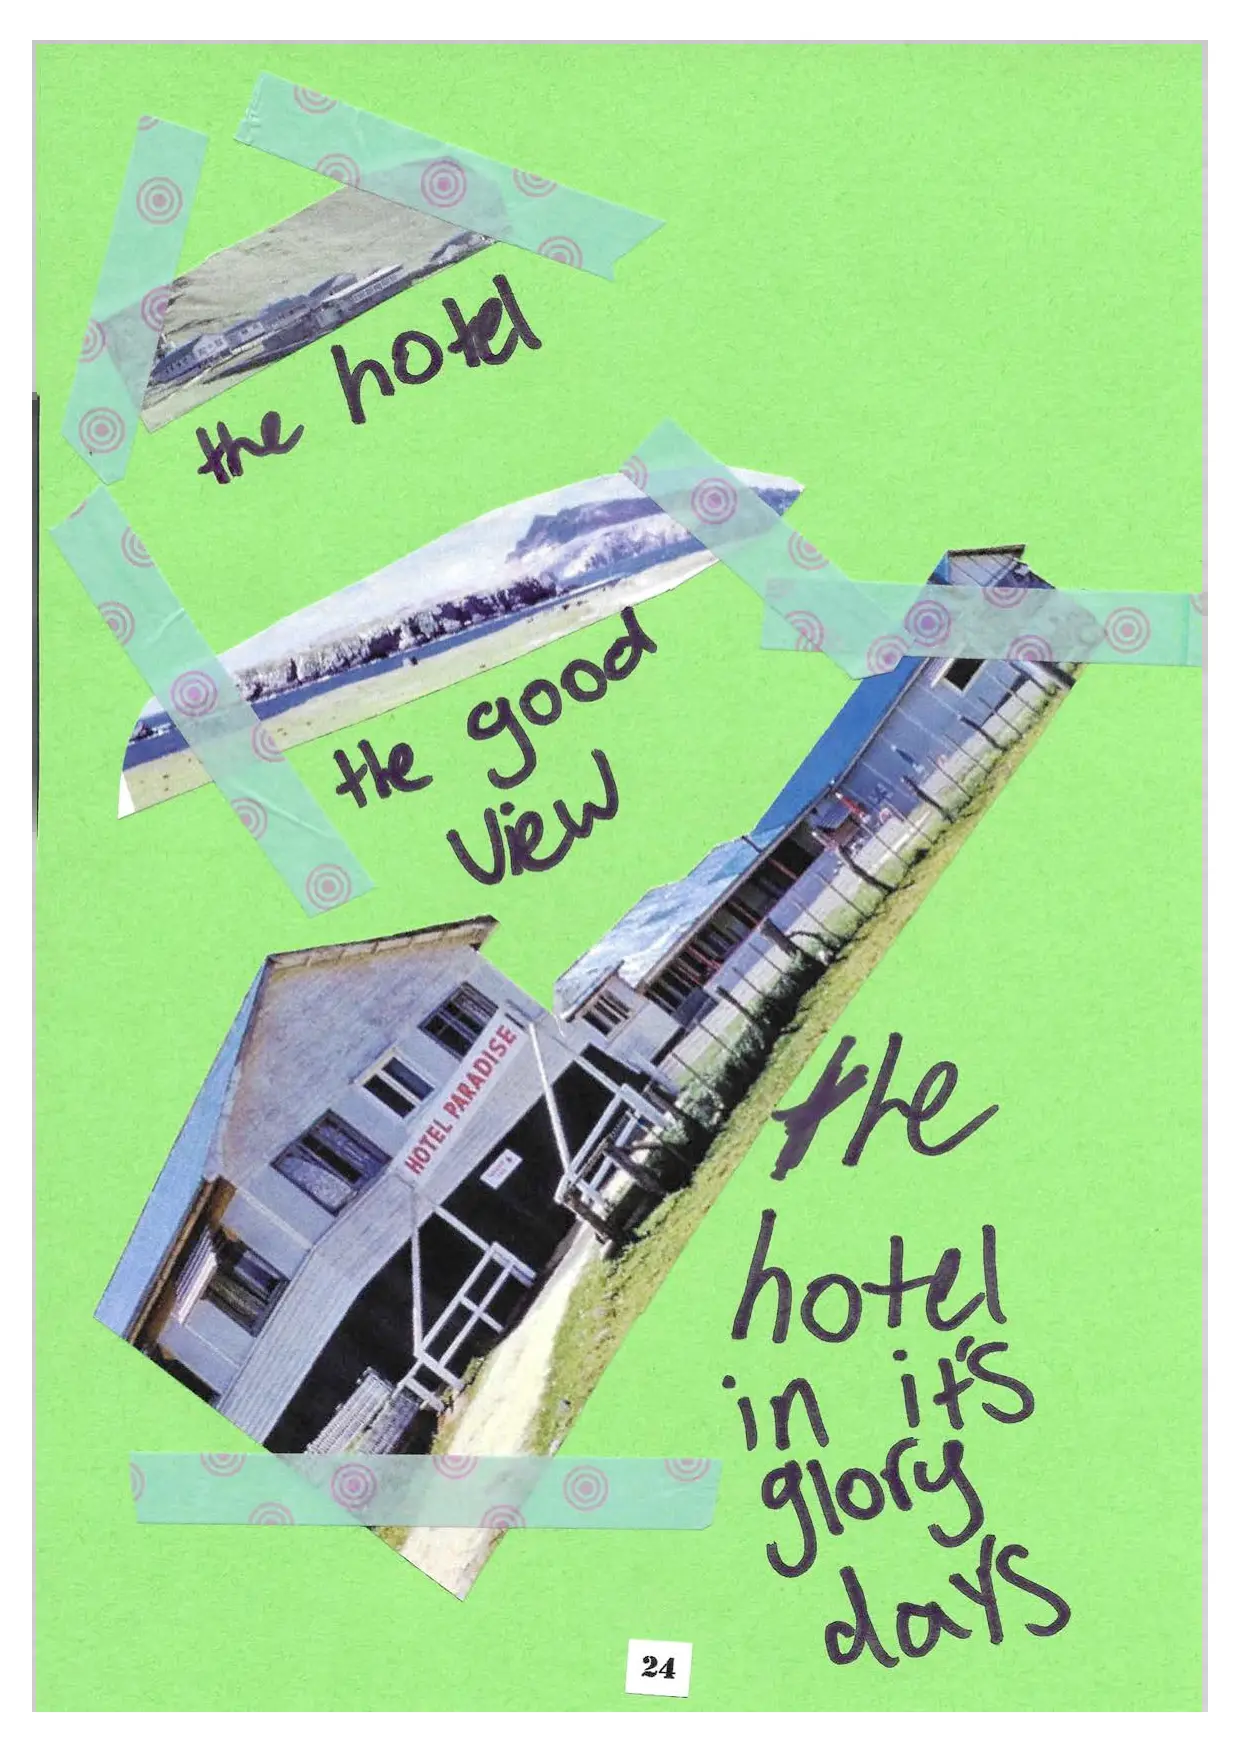 the hotel
the good
view
HOTEL PARADISE
the
hotel
in it's
glory
days
24